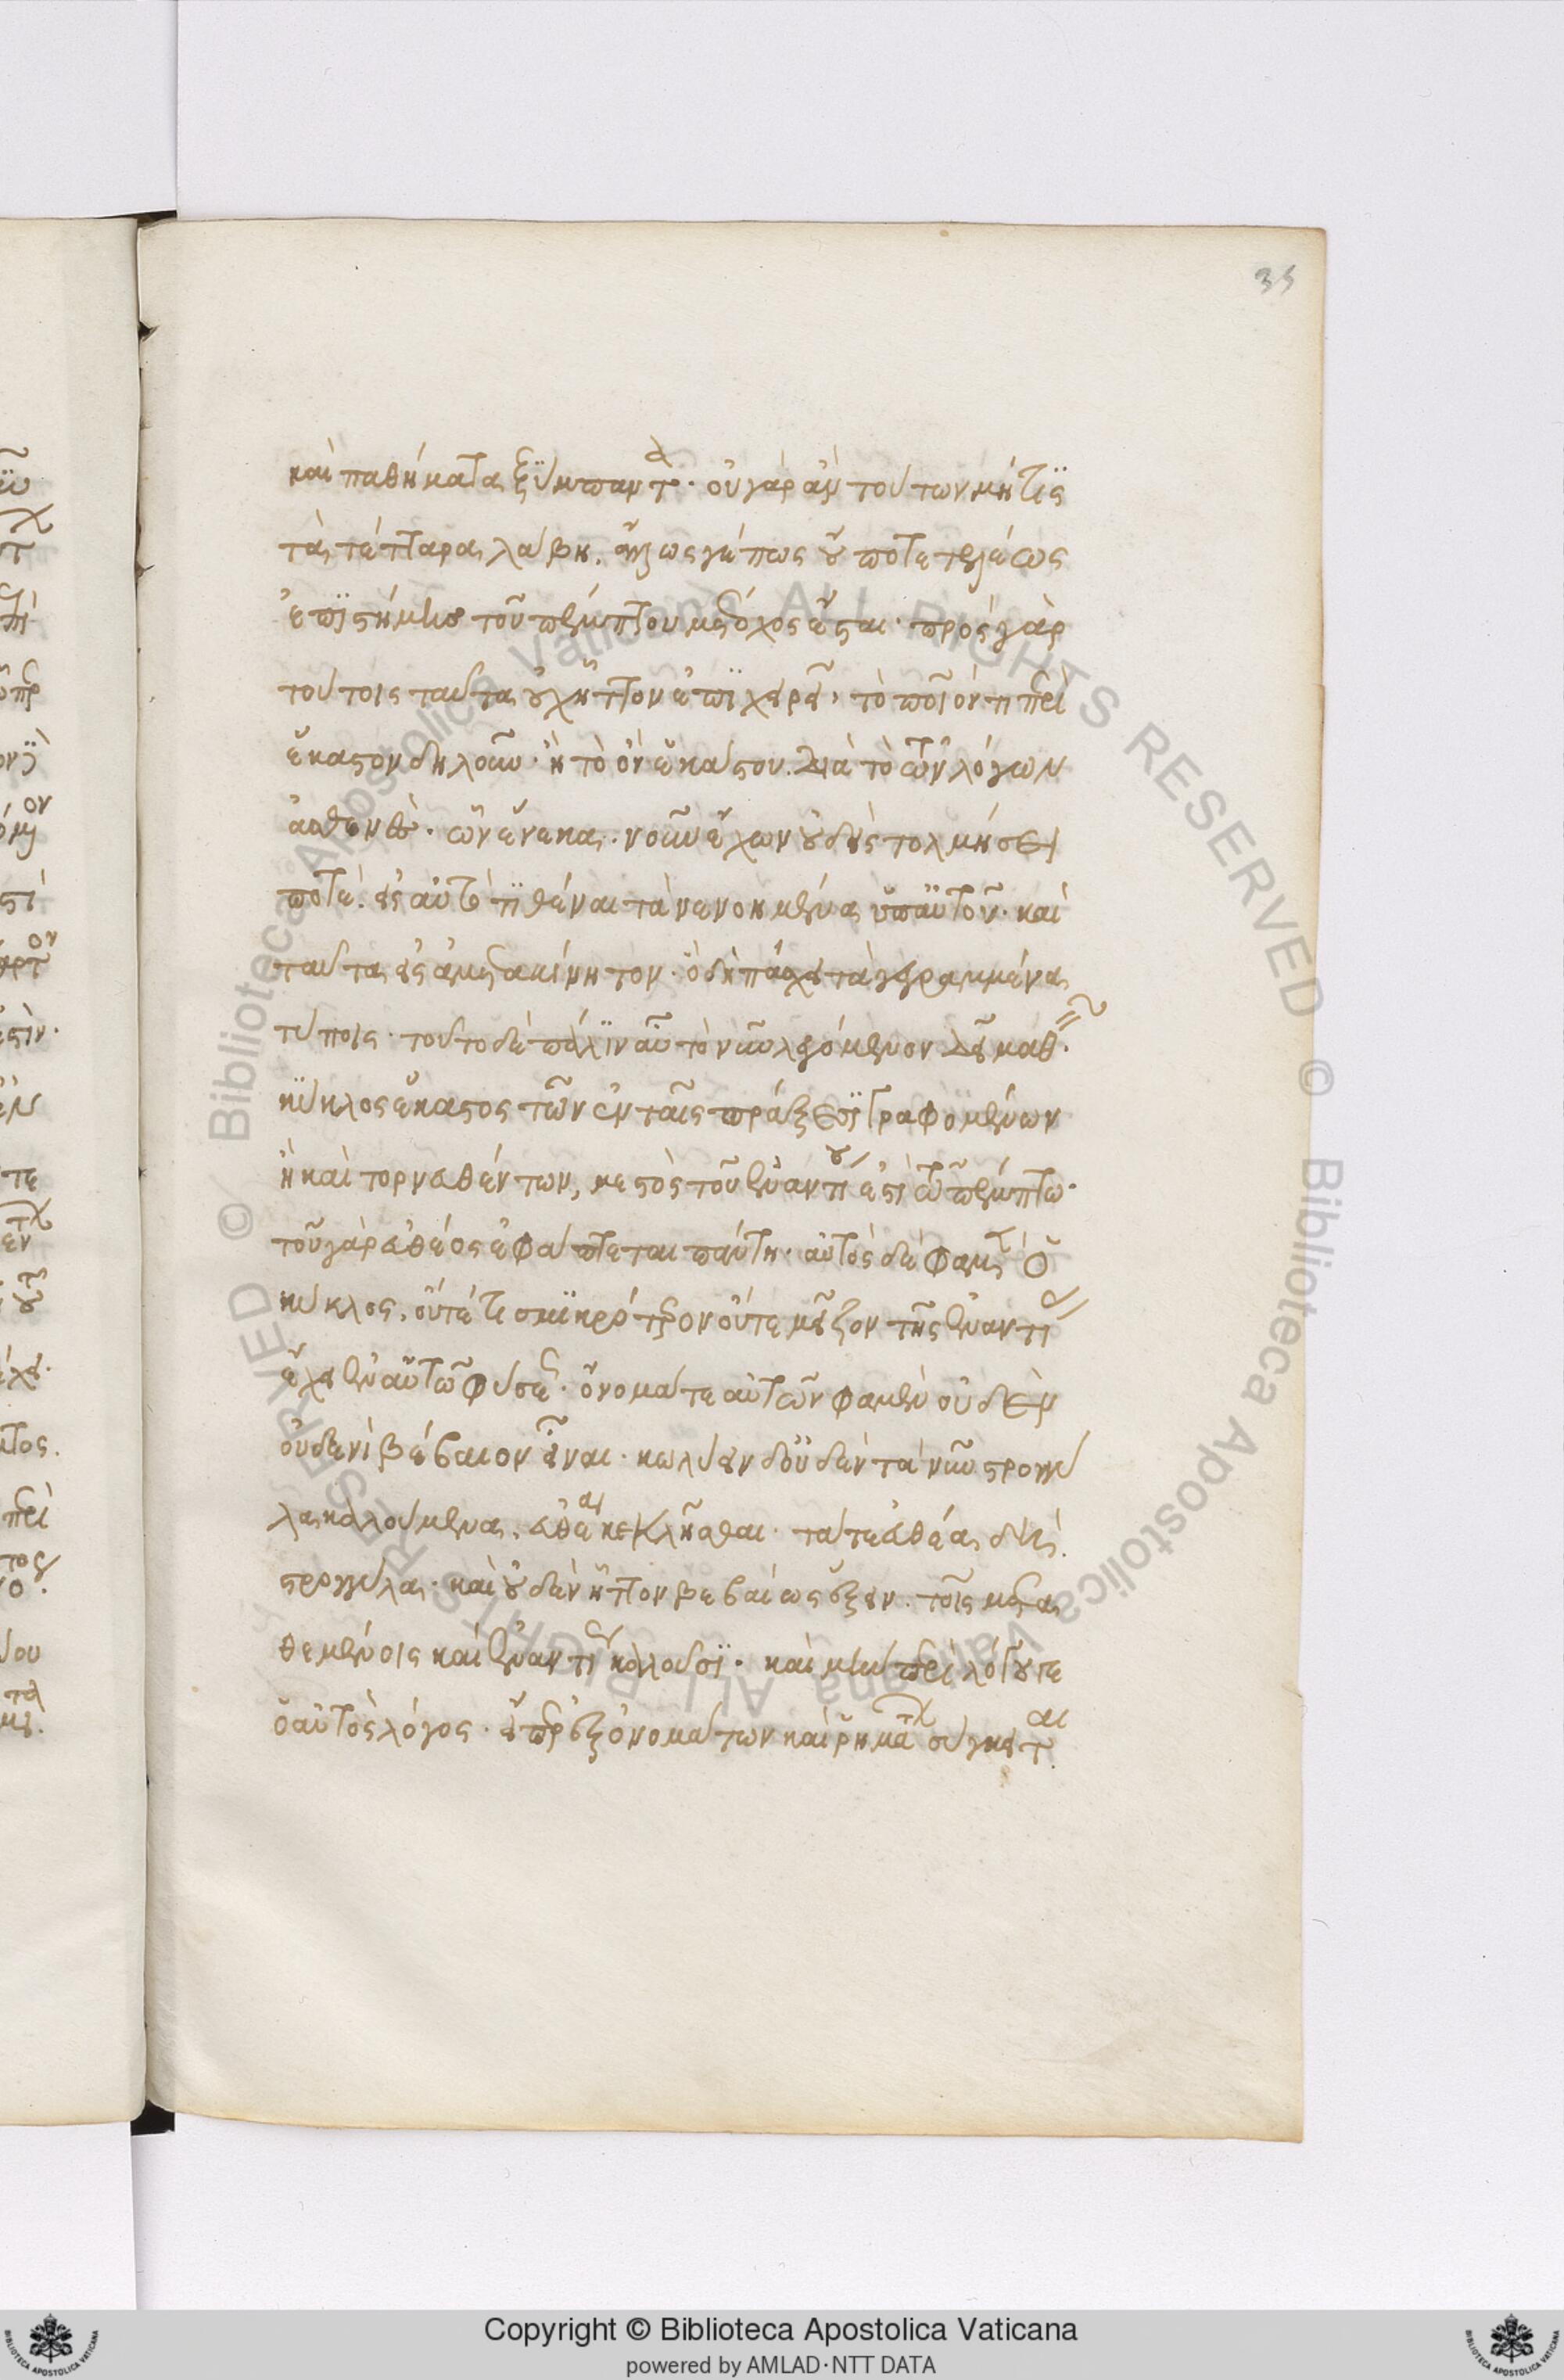 35
καὶ παθήματα ξύμπαντα· οὐ γὰρ ἂν τούτων μή τις
τὰ τέτταρα λάβῃ. ἄλλως γέ πως οὔποτε τελέως
ἐπιστήμης τοῦ πέμπτου μέτοχος ἔσται· πρὸς γὰρ
τούτοις ταῦτα οὐχ ἧττον ἐπιχειρεῖ, τὸ ποῖόν τι περὶ
ἕκαστον δηλοῦν· ἢ τὸ ὂν ἑκάστου. διὰ τὸ τῶν λόγων
ἀσθενές· ὧν ἕνεκα. νοῦν ἔχων οὐδεὶς τολμήσει
ποτέ. εἰς αὐτὸ τιθέναι τὰ νενοημένα ὑπ' αὐτοῦ· καὶ
ταῦτα εἰς ἀμετακίνητον· ὃ δὴ πάσχει τὰ γεγραμμένα
τύποις· τοῦτο δὲ πάλιν αὖ τὸ νῦν λεγόμενον δεῖ μαθεῖν.
κύκλος ἕκαστος τῶν ἐν ταῖς πράξεσι γραφομένων
ἢ καὶ τορνευθέντων, μεστὸς τοῦ ἐναντίου ἐστὶ τῷ πέμπτῳ·
τοῦ γὰρ εὐθέος ἐφάπτεται πάντῃ· αὐτὸς δέ φαμεν ὁ
κύκλος, οὔτέ τι σμικρότερον οὔτε μεῖζον τῆς ἐναντίας
ἔχει ἐν αὑτῷ φύσεως· ὄνομά τε αὐτῶν φαμεν οὐδὲν
οὐδενὶ βέβαιον εἶναι· κωλύειν δ' οὐδὲν τὰ νῦν στρογγύ
λα καλούμενα, εὐθέα κεκλῆσθαι· τά τε εὐθέα δὴ
στρογγύλα· καὶ οὐδὲν ἧττον βεβαίως ἕξειν. τοῖς μετα
θεμένοις καὶ ἐναντίως καλοῦσι· καὶ μὴν περὶ λόγου τε
ὁ αὐτὸς λόγος· εἴπερ ἐξ ὀνομάτων καὶ ῥημάτων σύγκειται.
Copyright © Biblioteca Apostolica Vaticana
powered by AMLAD·NTT DATA